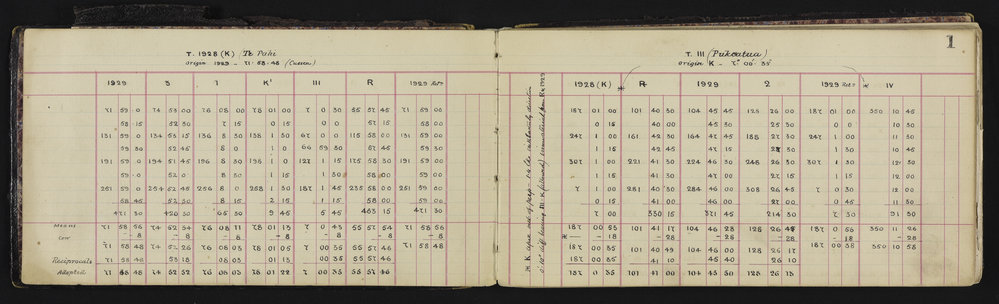 1
T. 1928 (K) Te Pahi
origin 1929 - 71·58·48 (Cussen)
1929 3 1 K' III R 1929 Retn
71 59 0 74 53 00 76 08 00 78 01 00 7 0 30 55 57 45 71 59 00
58 15 52 30 7 15 0 15 0 0 57 15 58 00
131 59 0 134 53 15 136 8 30 138 1 30 67 0 0 115 58 00 131 59 00
59 30 52 45 8 0 1 0 66 59 30 57 45 59 30
191 59 0 194 51 45 196 8 30 198 1 0 127 1 15 175 58 30 191 59 00
59 0 52 0 8 30 1 15 1 30 58 00 59 00
251 59 0 254 52 45 256 8 0 258 1 30 187 1 45 235 58 00 251 59 00
58 45 52 30 8 15 2 15 1 15 58 00 59 00
471 30 420 30 65 30 9 45 5 45 463 15 471 30
Means 71 58 56 74 52 34 76 08 11 78 01 13 7 0 43 55 57 54 71 58 56
Corr - 8 - 8 - 8 - 8 - 8 - 8 - 8
71 58 48 74 52 26 76 08 03 78 01 05 7 00 35 55 57 46 71 58 48
Reciprocals 71 58 48 53 18 08 03 01 13 00 35 55 57 46
Adopted 71 58 48 74 52 52 76 08 03 78 01 22 7 00 35 55 57 46
T. III (Pukeatua)
origin K - 7° 00' 35"
1928 (K) R 1929 2 1929 Retn IV
187 01 00 101 40 30 104 45 45 128 26 00 187 01 00 350 10 45
0 15 40 00 45 30 25 30 0 0 10 30
247 1 00 161 42 30 164 47 45 188 27 30 247 1 00 11 30
1 15 42 45 47 15 27 30 1 30 10 45
307 1 00 221 41 30 224 46 30 248 26 30 307 1 30 12 30
1 15 41 30 47 00 27 15 1 15 12 00
7 1 00 281 40 30 284 46 00 308 26 45 7 0 30 12 00
1 15 41 30 45 45 27 30 0 45 11 30
7 00 330 15 371 45 214 30 7 30 91 30
187 00 53 101 41 17 104 46 28 128 26 48 187 0 56 350 11 26
* - 18 - 28 - 28 - 18 - 28
187 00 35 101 40 49 104 46 00 128 26 17 187 00 38 350 10 58
187 00 35 41 10 45 40 26 10
187 0 35 101 41 00 104 45 50 128 26 13